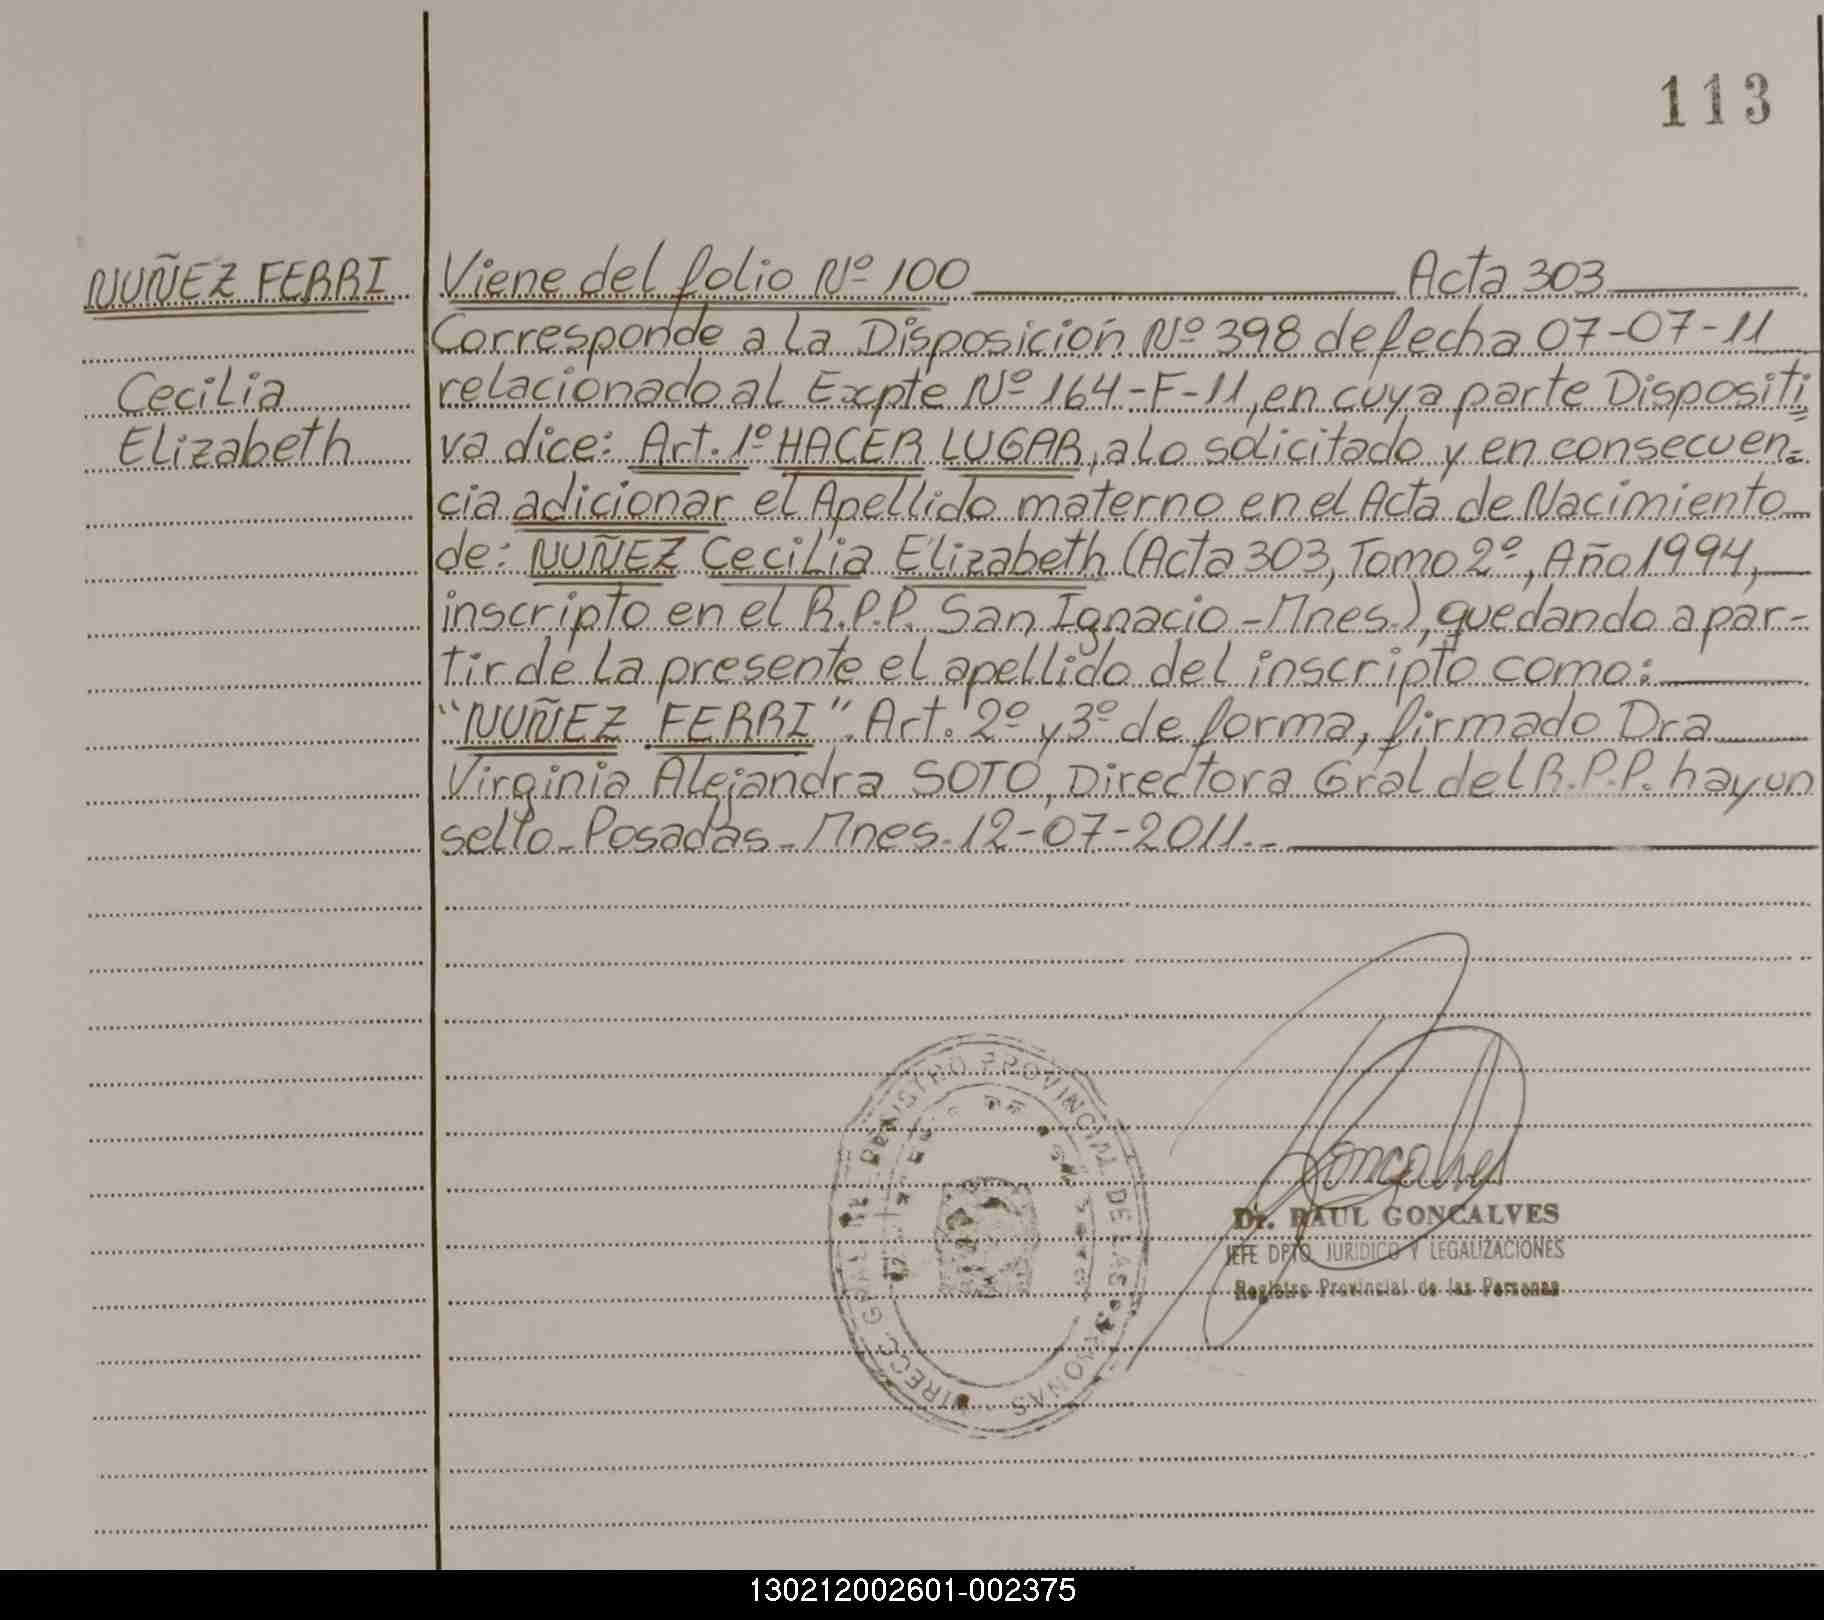 113
NUÑEZ FERRI
Cecilia
Elizabeth
Viene del folio Nº 100 Acta 303
Corresponde a la Disposición Nº 398 de fecha 07-07-11
relacionado al Excpte Nº 164-F-11, en cuya parte Dispositi=
va dice: Art. 1º HACER LUGAR, a lo solicitado y en consecuen=
cia adicionar el Apellido materno en el Acta de Nacimiento
de: NUÑEZ Cecilia Elizabeth (Acta 303, Tomo 2º, Año 1994,
inscripto en el R.P.P. San Ignacio - Mnes.), quedando a par-
tir de la presente el apellido del inscripto como:
"NUÑEZ FERRI". Art. 2º y 3º de forma, firmado Dra
Virginia Alejandra SOTO, Directora Gral del R.P.P. hay un
sello - Posadas - Mnes. 12-07-2011.-
REGISTRO PROVINCIAL DE LAS PERSONAS
DIRECC. GRAL.
Goncalves
Dr. RAUL GONCALVES
JEFE DPTO. JURIDICO Y LEGALIZACIONES
Registro Provincial de las Personas
130212002601-002375